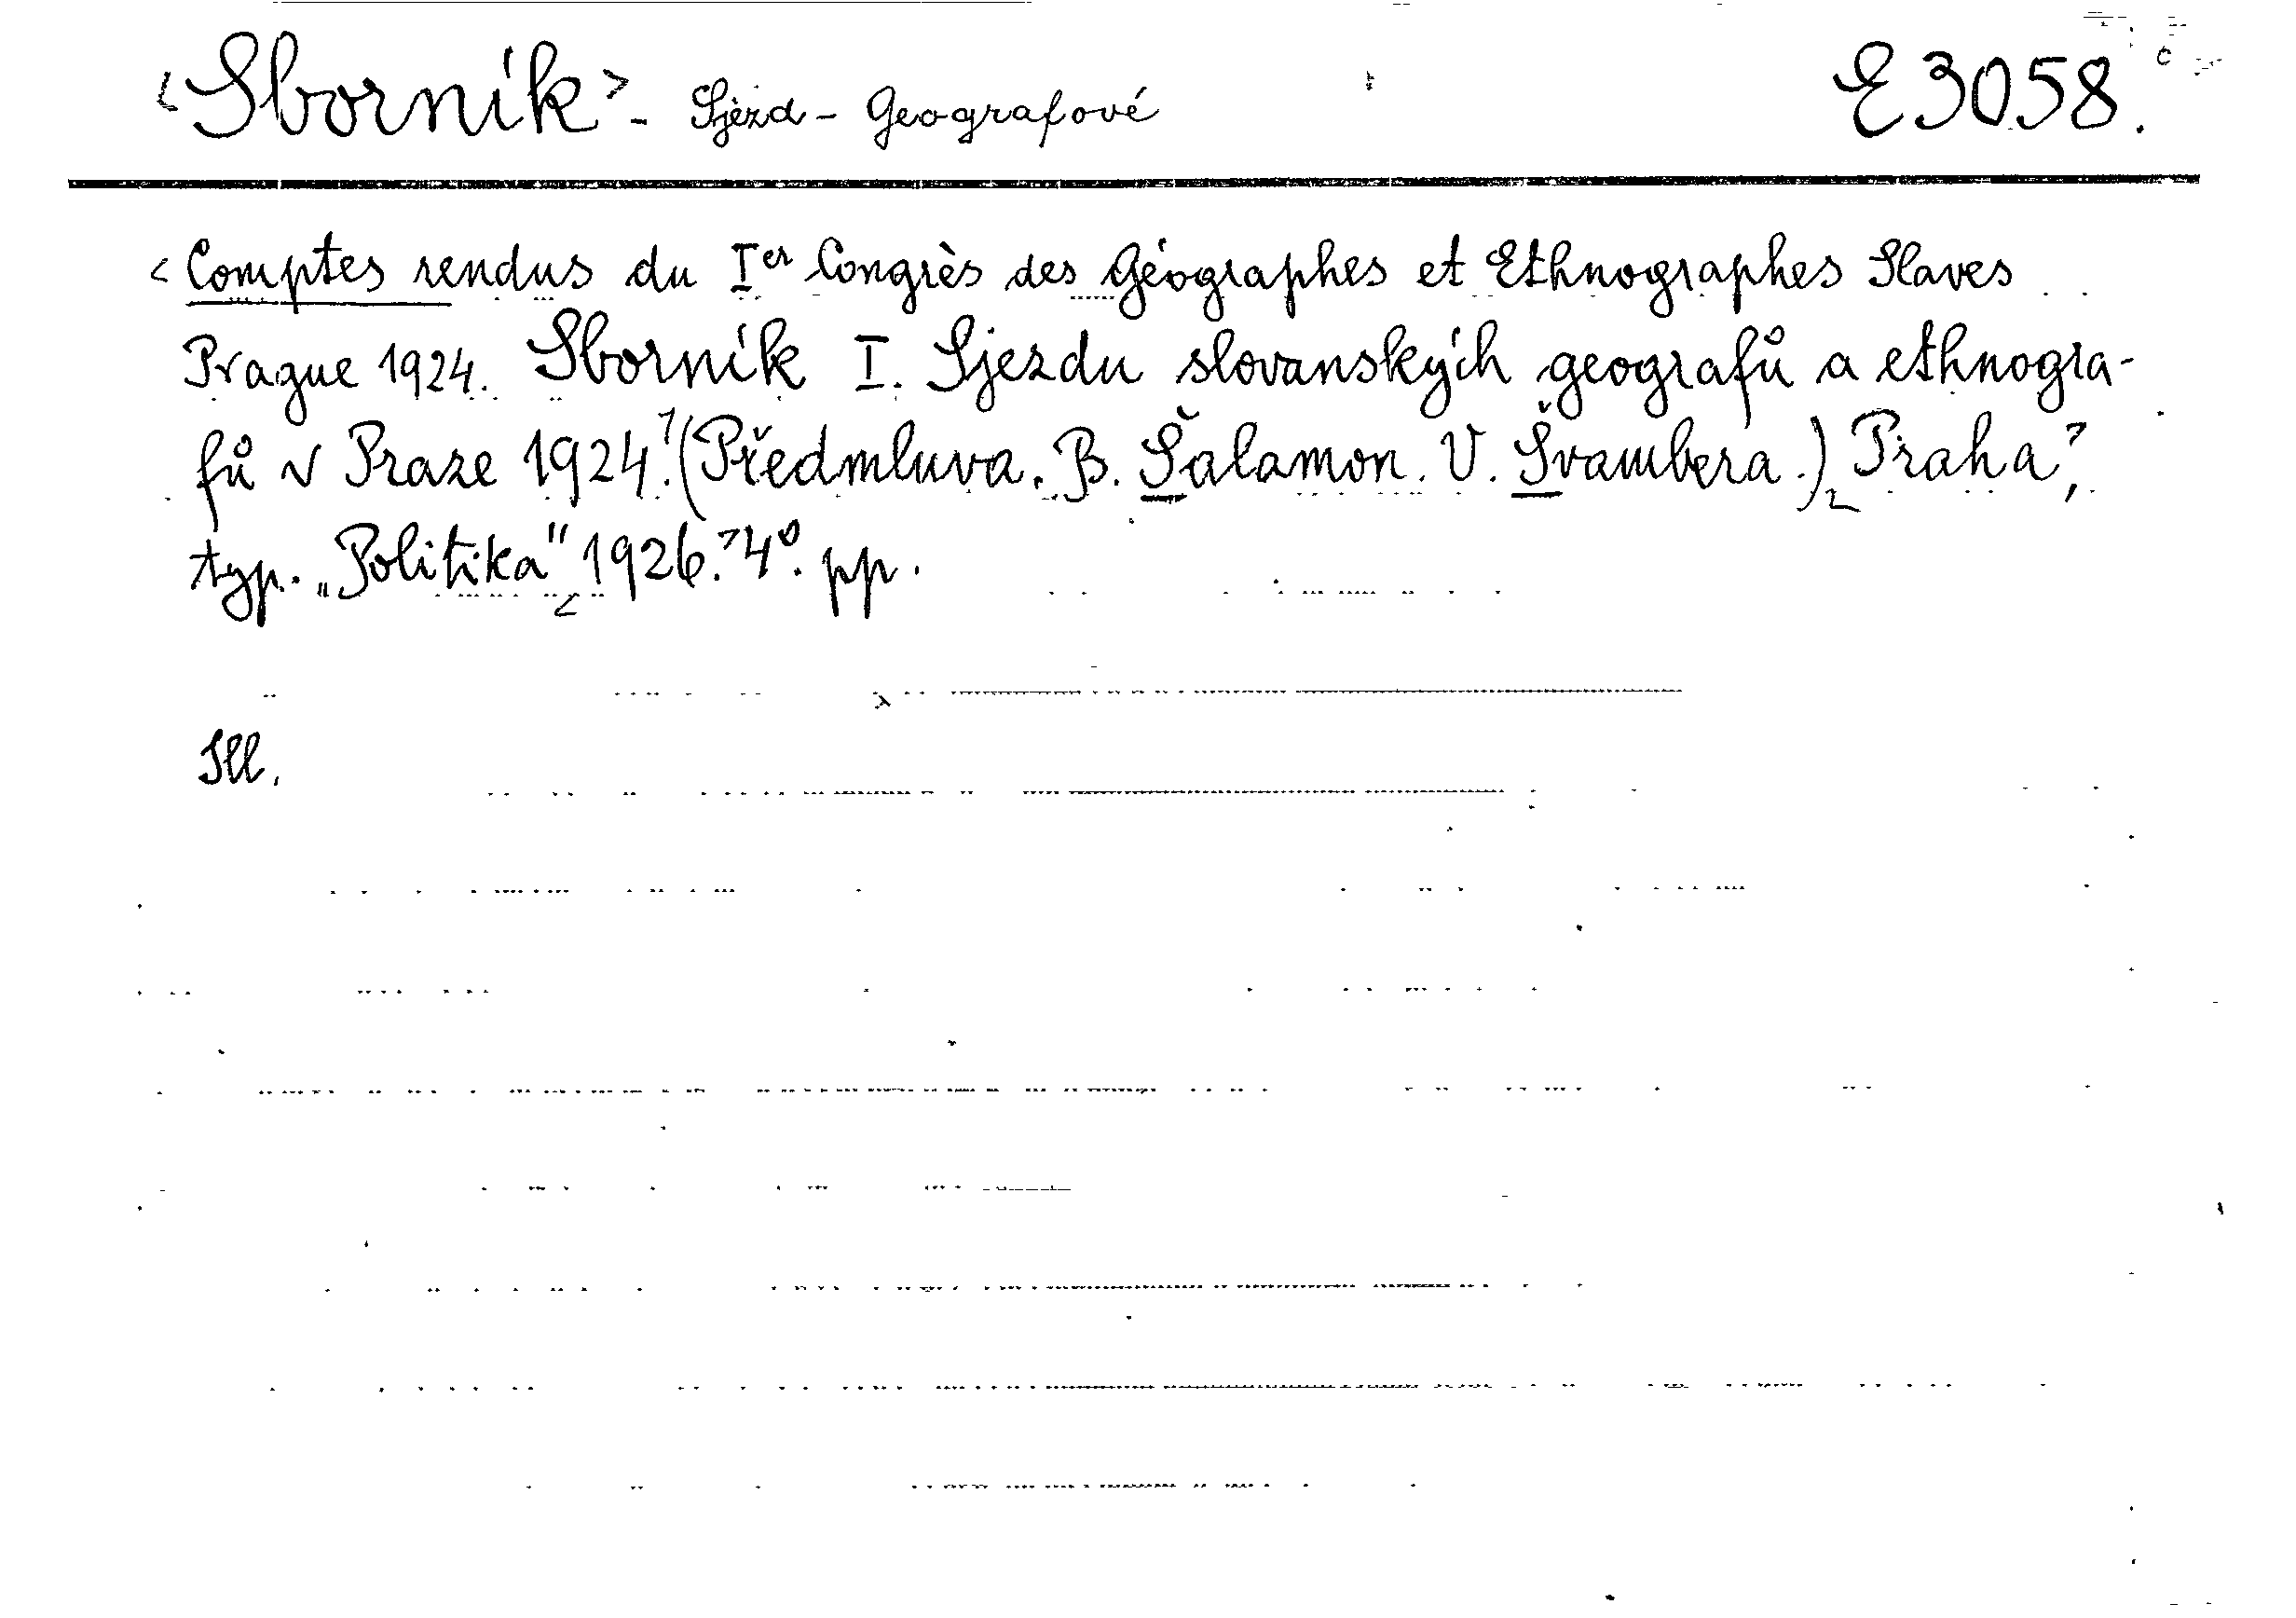 <Sborník> - Sjezd - Geografové E 3058.
<Comptes rendus du Ier Congrès des Géographes et Ethnographes Slaves
Prague 1924. Sborník I. Sjezdu slovanských geografů a ethnogra-
fů v Praze 1924.> (Předmluva. B. Šalamon. V. Švambera.) <Praha>,
typ. „Politika" <1926.> 4º. pp.
Ill.